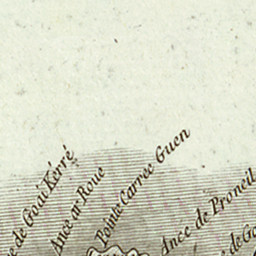 e de Goah Kerré
Ance ar Roue
Pointe Carrec Guen
Ance de Proneil
e de Go